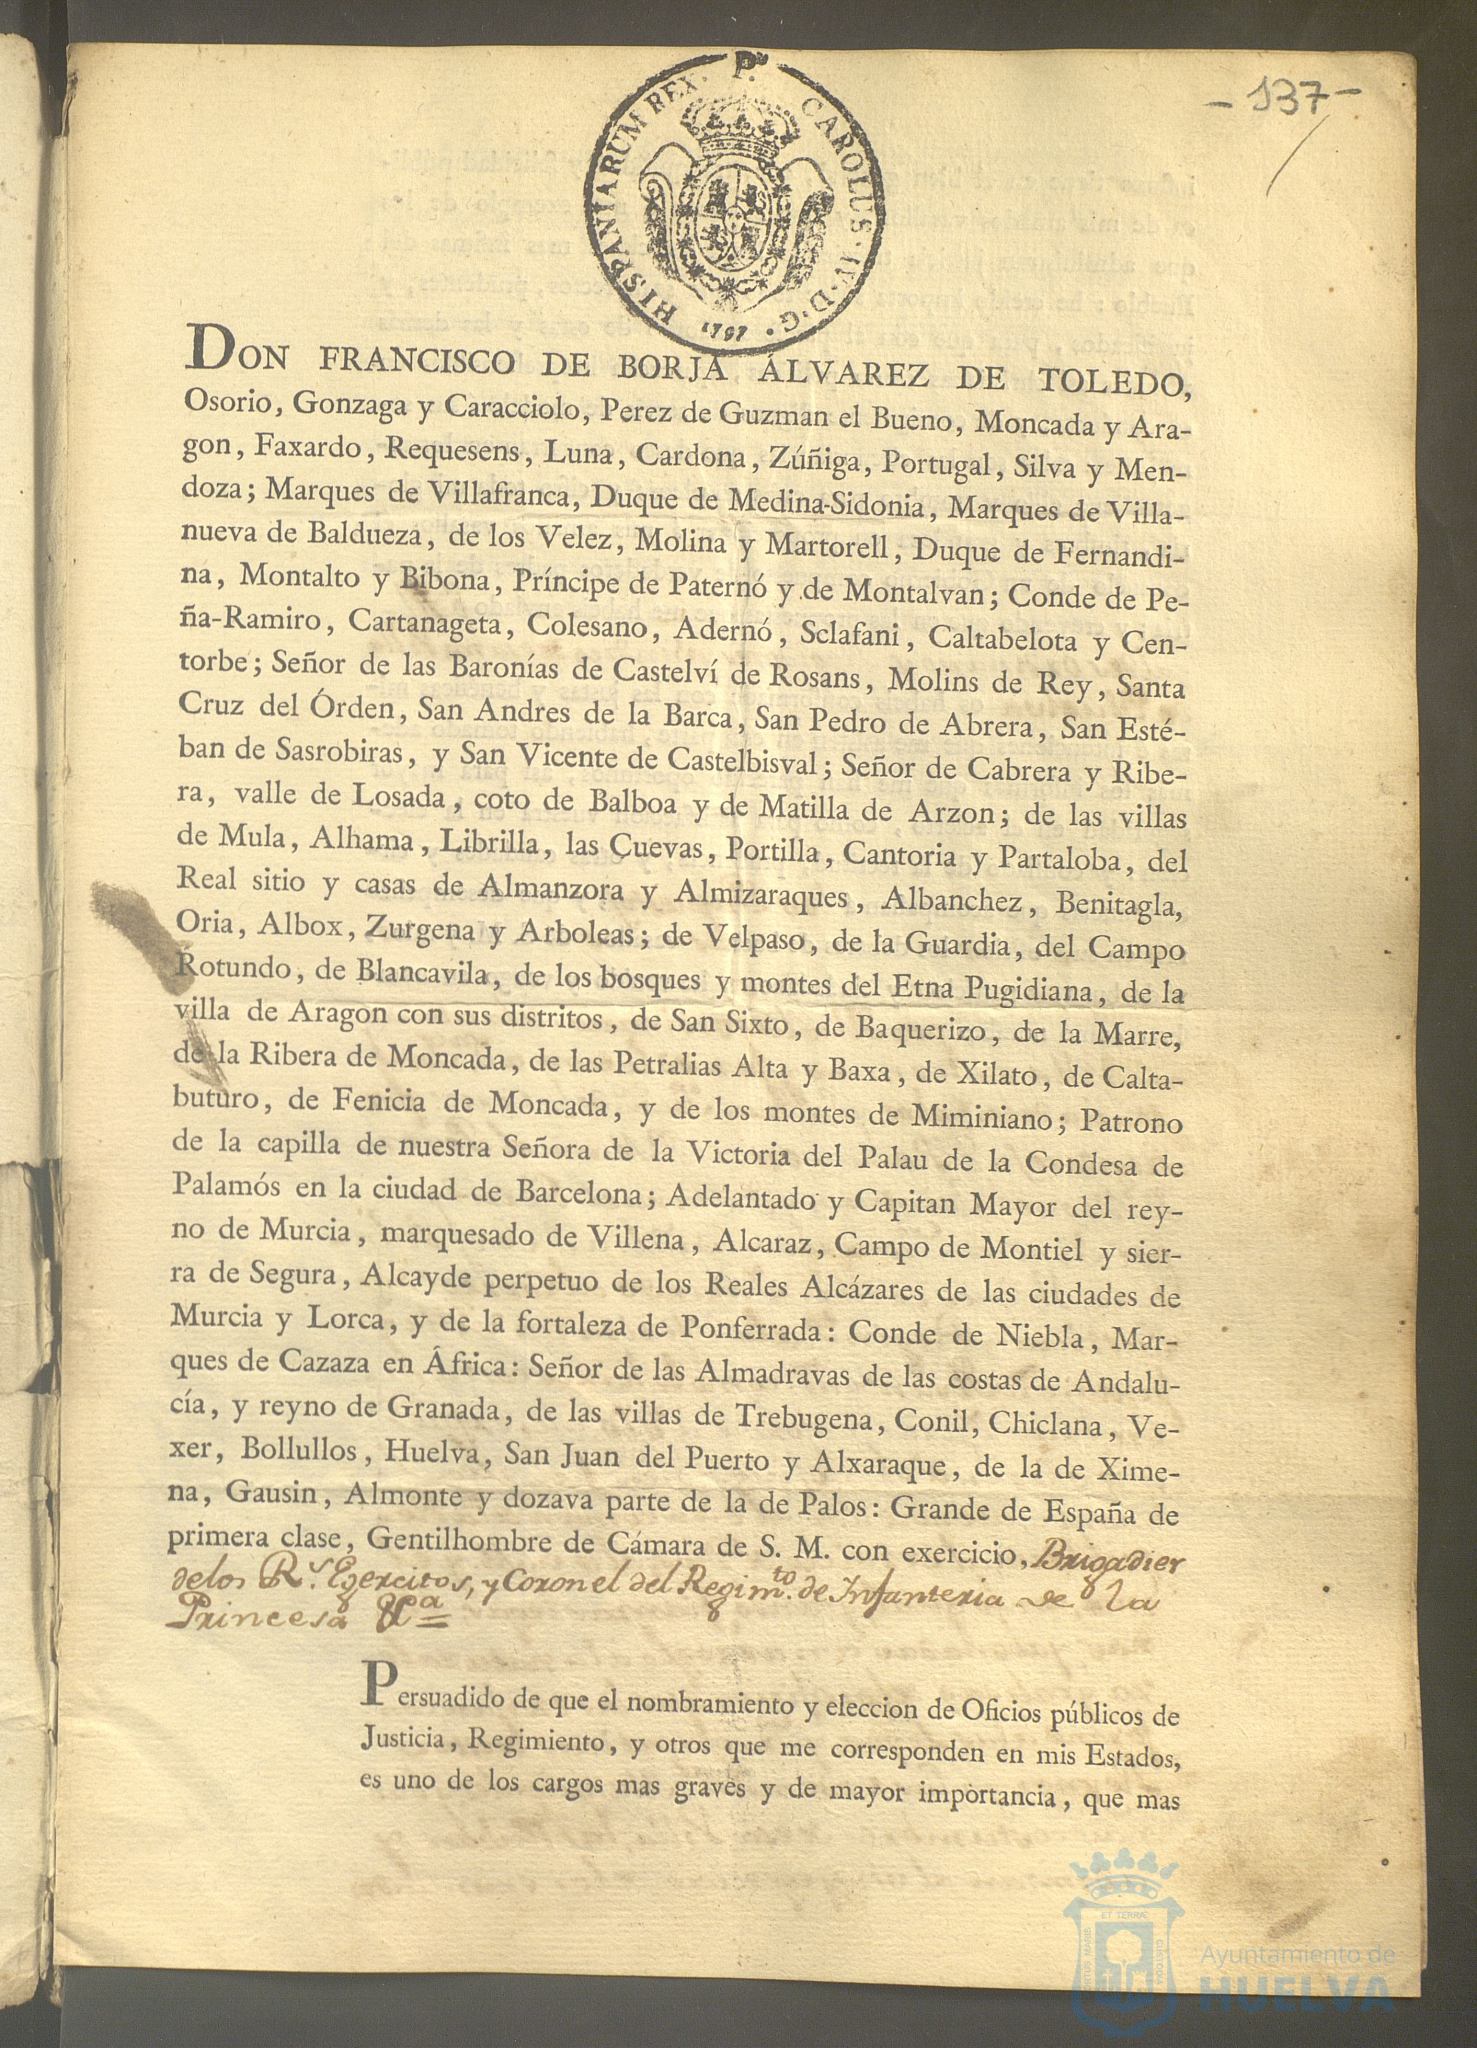 - 137 -
HISPANIARUM REX. P. CAROLUS. IV. D. G.
1797
DON FRANCISCO DE BORJA ÁLVAREZ DE TOLEDO,
Osorio, Gonzaga y Caracciolo, Perez de Guzman el Bueno, Moncada y Ara-
gon, Faxardo, Requesens, Luna, Cardona, Zúñiga, Portugal, Silva y Men-
doza; Marques de Villafranca, Duque de Medina-Sidonia, Marques de Villa-
nueva de Baldueza, de los Velez, Molina y Martorell, Duque de Fernandi-
na, Montalto y Bibona, Príncipe de Paternó y de Montalvan; Conde de Pe-
ña-Ramiro, Cartanageta, Colesano, Adernó, Sclafani, Caltabelota y Cen-
torbe; Señor de las Baronías de Castelví de Rosans, Molins de Rey, Santa
Cruz del Órden, San Andres de la Barca, San Pedro de Abrera, San Esté-
ban de Sasrobiras, y San Vicente de Castelbisval; Señor de Cabrera y Ribe-
ra, valle de Losada, coto de Balboa y de Matilla de Arzon; de las villas
de Mula, Alhama, Librilla, las Cuevas, Portilla, Cantoria y Partaloba, del
Real sitio y casas de Almanzora y Almizaraques, Albanchez, Benitagla,
Oria, Albox, Zurgena y Arboleas; de Velpaso, de la Guardia, del Campo
Rotundo, de Blancavila, de los bosques y montes del Etna Pugidiana, de la
villa de Aragon con sus distritos, de San Sixto, de Baquerizo, de la Marre,
de la Ribera de Moncada, de las Petralias Alta y Baxa, de Xilato, de Calta-
buturo, de Fenicia de Moncada, y de los montes de Miminiano; Patrono
de la capilla de nuestra Señora de la Victoria del Palau de la Condesa de
Palamós en la ciudad de Barcelona; Adelantado y Capitan Mayor del rey-
no de Murcia, marquesado de Villena, Alcaraz, Campo de Montiel y sier-
ra de Segura, Alcayde perpetuo de los Reales Alcázares de las ciudades de
Murcia y Lorca, y de la fortaleza de Ponferrada: Conde de Niebla, Mar-
ques de Cazaza en África: Señor de las Almadravas de las costas de Andalu-
cía, y reyno de Granada, de las villas de Trebugena, Conil, Chiclana, Ve-
xer, Bollullos, Huelva, San Juan del Puerto y Alxaraque, de la de Xime-
na, Gausin, Almonte y dozava parte de la de Palos: Grande de España de
primera clase, Gentilhombre de Cámara de S. M. con exercicio, Brigadier
delos R.s Egercitos, y Coronel del Regim.to de Infanteria de la
Princesa &a
Persuadido de que el nombramiento y eleccion de Oficios públicos de
Justicia, Regimiento, y otros que me corresponden en mis Estados,
es uno de los cargos mas graves y de mayor importancia, que mas
PORTUS MARIS ET TERRAE CUSTODIA
Ayuntamiento de
HUELVA